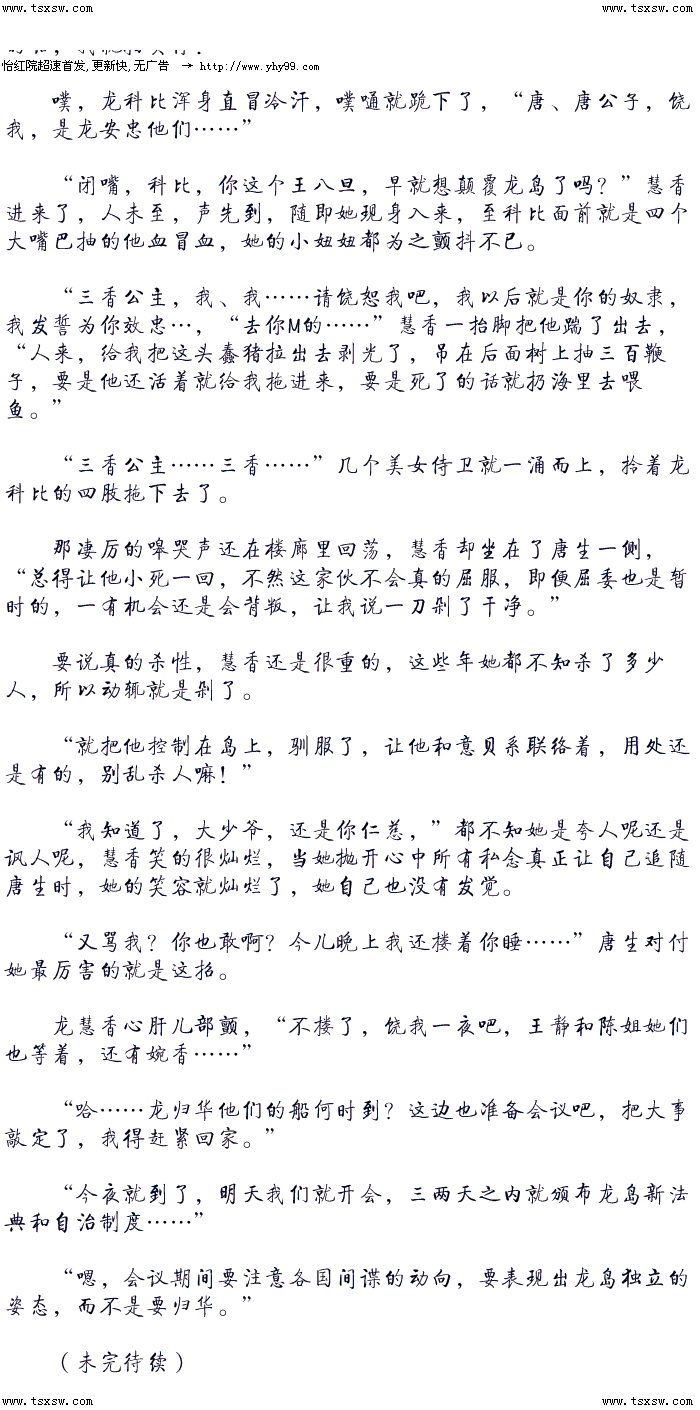 www.tsxsw.com www.tsxsw.com
怡红院超速首发,更新快,无广告 → http://www.yhy99.com
噗，龙科比浑身直冒冷汗，噗通就跪下了，“唐、唐公子，饶
我，是龙安忠他们……”
“闭嘴，科比，你这个王八旦，早就想颠覆龙岛了吗？”慧香
进来了，人未至，声先到，随即她现身入来，至科比面前就是四个
大嘴巴抽的他血冒血，她的小妞妞都为之颤抖不已。
“三香公主，我、我……请饶恕我吧，我以后就是你的奴隶，
我发誓为你效忠…，“去你M的……”慧香一抬脚把他踹了出去，
“人来，给我把这头蠢猪拉出去剥光了，吊在后面树上抽三百鞭
子，要是他还活着就给我拖进来，要是死了的话就扔海里去喂
鱼。”
“三香公主……三香……”几个美女侍卫就一涌而上，拎着龙
科比的四肢拖下去了。
那凄厉的嗥哭声还在楼廊里回荡，慧香却坐在了唐生一侧，
“总得让他小死一回，不然这家伙不会真的屈服，即便屈委也是暂
时的，一有机会还是会背叛，让我说一刀剁了干净。”
要说真的杀性，慧香还是很重的，这些年她都不知杀了多少
人，所以动辄就是剁了。
“就把他控制在岛上，驯服了，让他和意贝系联络着，用处还
是有的，别乱杀人嘛！”
“我知道了，大少爷，还是你仁慈，”都不知她是夸人呢还是
讽人呢，慧香笑的很灿烂，当她抛开心中所有私念真正让自己追随
唐生时，她的笑容就灿烂了，她自己也没有发觉。
“又骂我？你也敢啊？今儿晚上我还搂着你睡……”唐生对付
她最厉害的就是这招。
龙慧香心肝儿部颤，“不搂了，饶我一夜吧，王静和陈姐她们
也等着，还有婉香……”
“哈……龙归华他们的船何时到？这边也准备会议吧，把大事
敲定了，我得赶紧回家。”
“今夜就到了，明天我们就开会，三两天之内就颁布龙岛新法
典和自治制度……”
“嗯，会议期间要注意各国间谍的动向，要表现出龙岛独立的
姿态，而不是要归华。”
（未完待续）
www.tsxsw.com www.tsxsw.com